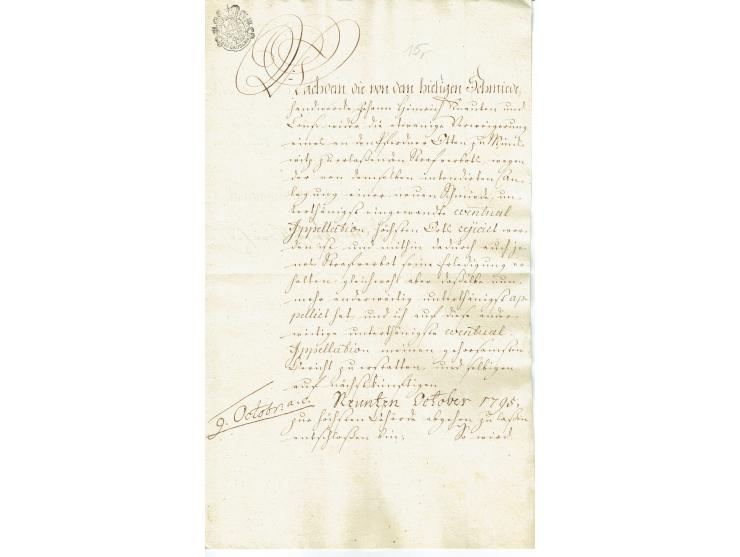 15,
Nachdem die von dem hiesigen Schmiede
handwercke Johann Heinrich Knauten und
Cons. wider die etwanige Verweigerung
eines an den Pfarrer Otten zu
witz zu erlaßenden Strafverbots, wegen
der von demselben intendirten An-
legung einer neuen Schmiede, un-
terthänigst eingewandte eventual
Appellation, höchsten Orts rejicirt wor-
den ist und mithin dadurch auch je-
nes Strafverbot seine Erledigung er-
halten, gleichwohl aber dieselbe nun-
mehr anderweitig unterthänigst ap-
pellirt hat, und ich auf diese ander-
weitige unterthänigste eventual
Appellation meinen gehorsamsten
Bericht zu erstatten, und selbigen
auf nächstkünftigen
9. Octobr. a. c.
Neunten October 1795.
zur höchsten Behörde abgehen zu laßen
entschloßen bin; So wird